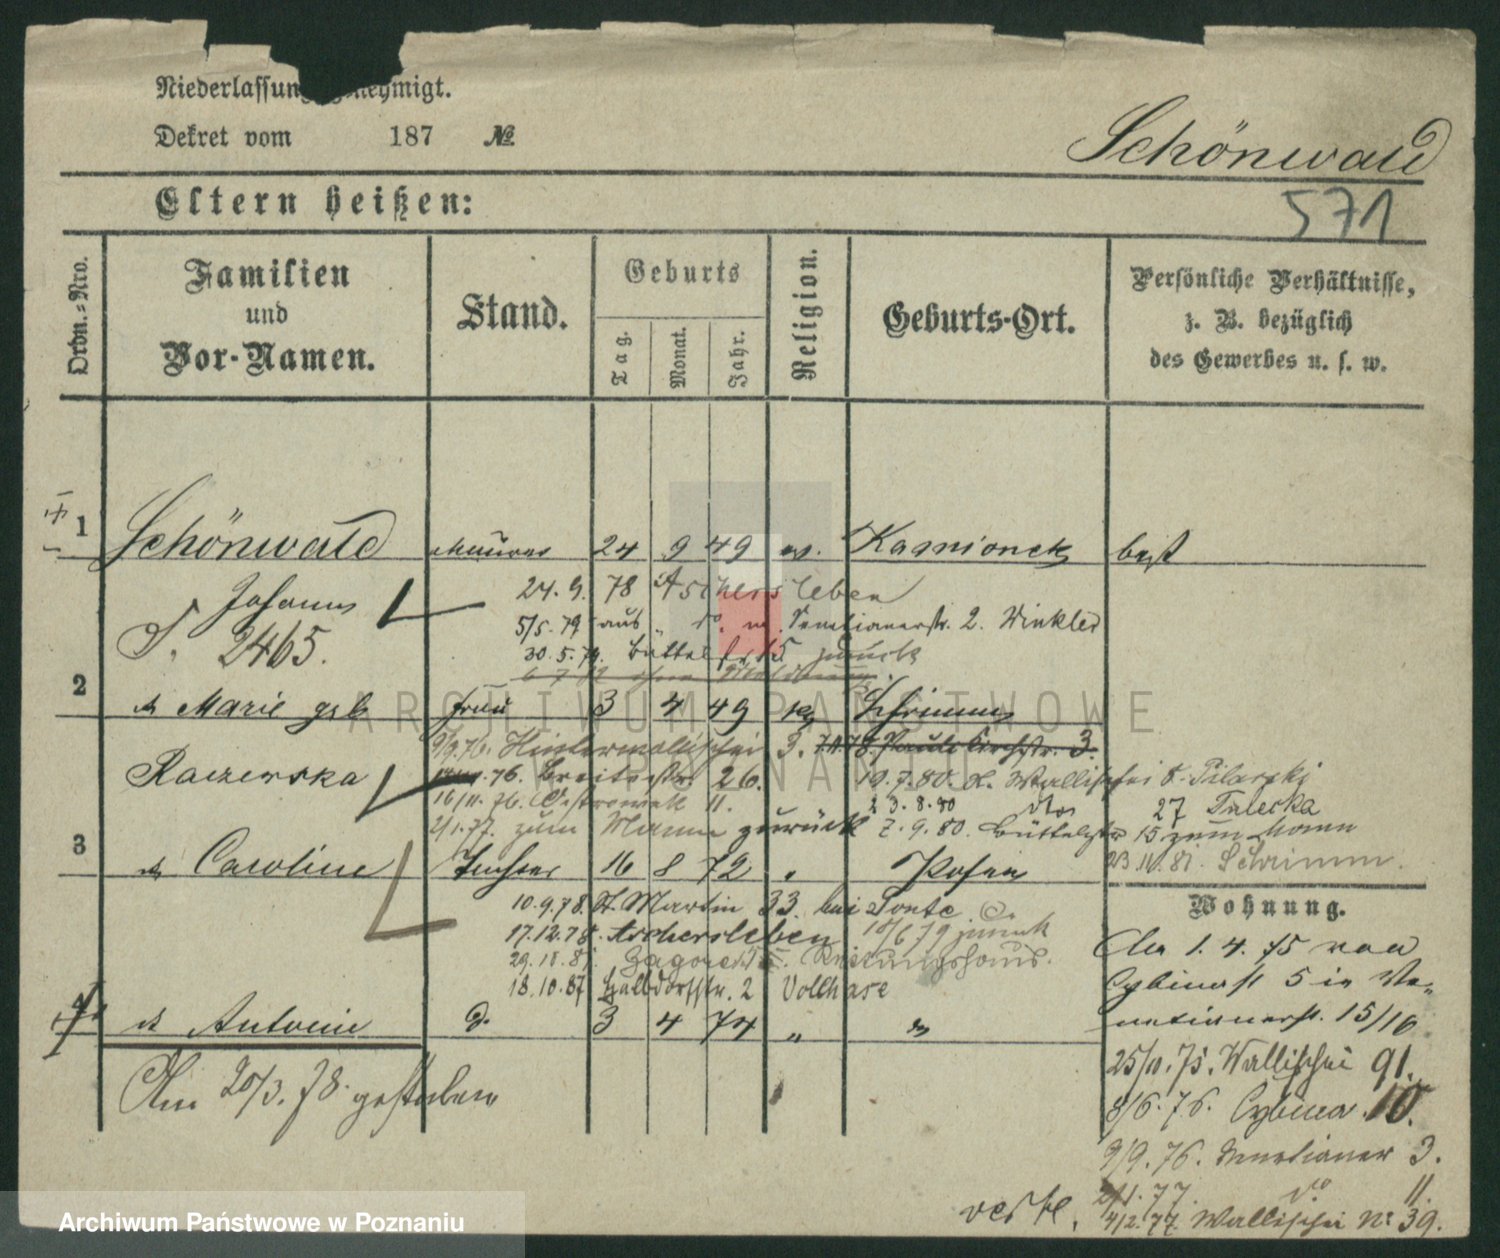 Niederlassung genehmigt.
Dekret vom 187 №
Schönwald
Eltern heißen:
571
Ordn.-Nro.
Familien
und
Vor-Namen.
Stand.
Geburts
Tag.
Monat.
Jahr.
Religion.
Geburts-Ort.
Persönliche Verhältnisse,
z. B. bezüglich
des Gewerbes u. s. w.
1 Schönwald Maurer 24 9 49 ev. Kamionek
Johann
24. 9. 78 Aschersleben
T. 2465.
5/5. 79 aus Venetianerstr. 2. Winkler
30. 5. 79. Büttelstr 15 zurück
2 Marie geb Frau 3 4 49 Schrimm
9/9. 76. Hinterwallischei 3. 7.11.78. Paulikirchstr. 3.
Raczewska
76. Breitestr. 26.
19. 7. 80. Wallischei 8. Pilarski
16/11. 76. Ostrowek 11.
3. 8. 80 dto 27 Tulecka
2/1. 77. zum Manne zurück
7. 9. 80. Büttelstr 15 zum Mann
3 Caroline Tochter 16 8 72 " Posen
81. Schrimm.
10. 9. 78. St. Martin 33. bei Sonte
17. 12. 78. Aschersleben
18/6 79 zurück
18. 10. 87 Halbdorfstr. 2 Vollhase
4 Antonie d. 3 4 74 " "
Am 20/3. 78. gestorben
Wohnung.
1. 4. 75 von
Cybinast 5 in Ve-
netianerst. 15/16
25/11. 75. Wallischei 91.
8/6. 76. Cybina 10.
9/9. 76. Venetianer 3.
2/1. 77. do 11.
4/2. 77. Wallischei No 39.
verte.
ARCHIWUM PAŃSTWOWE
W POZNANIU
Archiwum Państwowe w Poznaniu